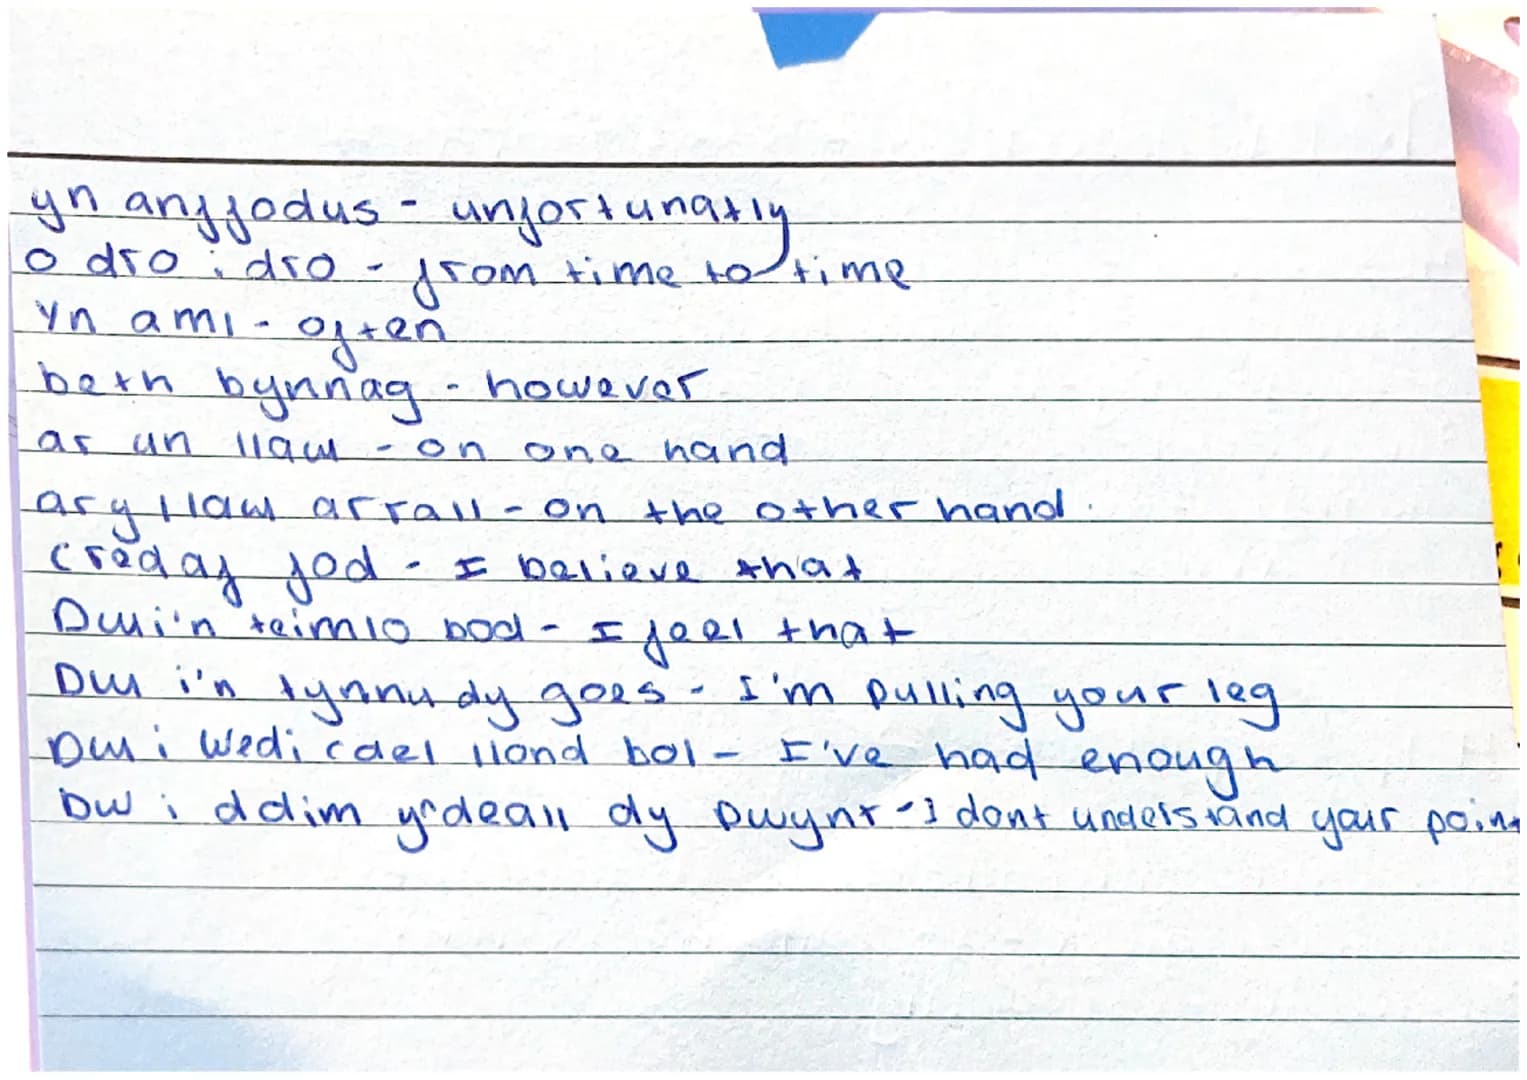 yn anffodus - unfortunatly
o dro i dro - from time to time
Yn aml - often
beth bynnag - however
ar un llaw - on one hand
ar y llaw arrall - on the other hand.
Credaf fod - I believe that
Dwi'n teimlo bod - I feel that
Dw i'n tynnu dy goes - I'm pulling your leg
Dw i wedi cael llond bol - I've had enough
Dw i ddim yrdeall dy pwynt - I dont understand your point